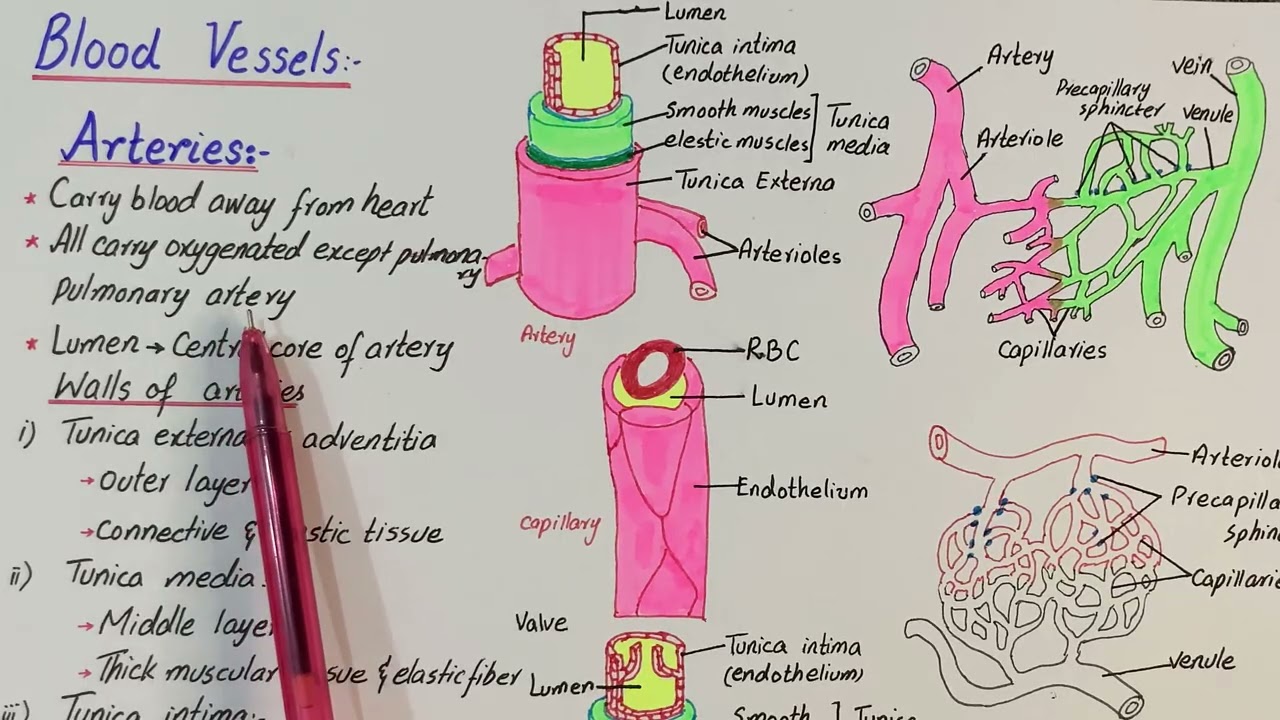 Blood Vessels:-
Arteries:-
* Carry blood away from heart
* All carry oxygenated except pulmona-
ry
Pulmonary artery
* Lumen → Cent core of artery
Walls of
i) Tunica externa adventitia
→ Outer layer
→ Connective & stic tissue
ii) Tunica media:
→ Middle layer
→ Thick muscular sue & elastic fiber
iii) Tunica intima:-
Lumen
Tunica intima
(endothelium)
Smooth muscles
elestic muscles
Tunica
media
Tunica Externa
Arterioles
Artery
RBC
Lumen
Endothelium
Capillary
Valve
Tunica intima
(endothelium)
Lumen
Smooth
Tunica
Artery
Arteriole
Precapillary
sphincter
vein
venule
Capillaries
Arteriol
Precapilla
sphin
Capillarie
venule